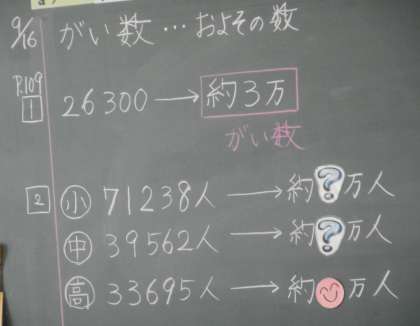 9/16 がい数…およその数
P.109
1 26300→約3万
がい数
2 小 71238人→約?万人
中 39562人→約?万人
高 33695人→約 万人